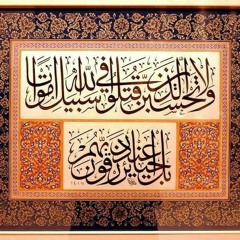 ولا تحسبن الذين قتلوا في سبيل الله أمواتا
بل أحياء عند ربهم يرزقون